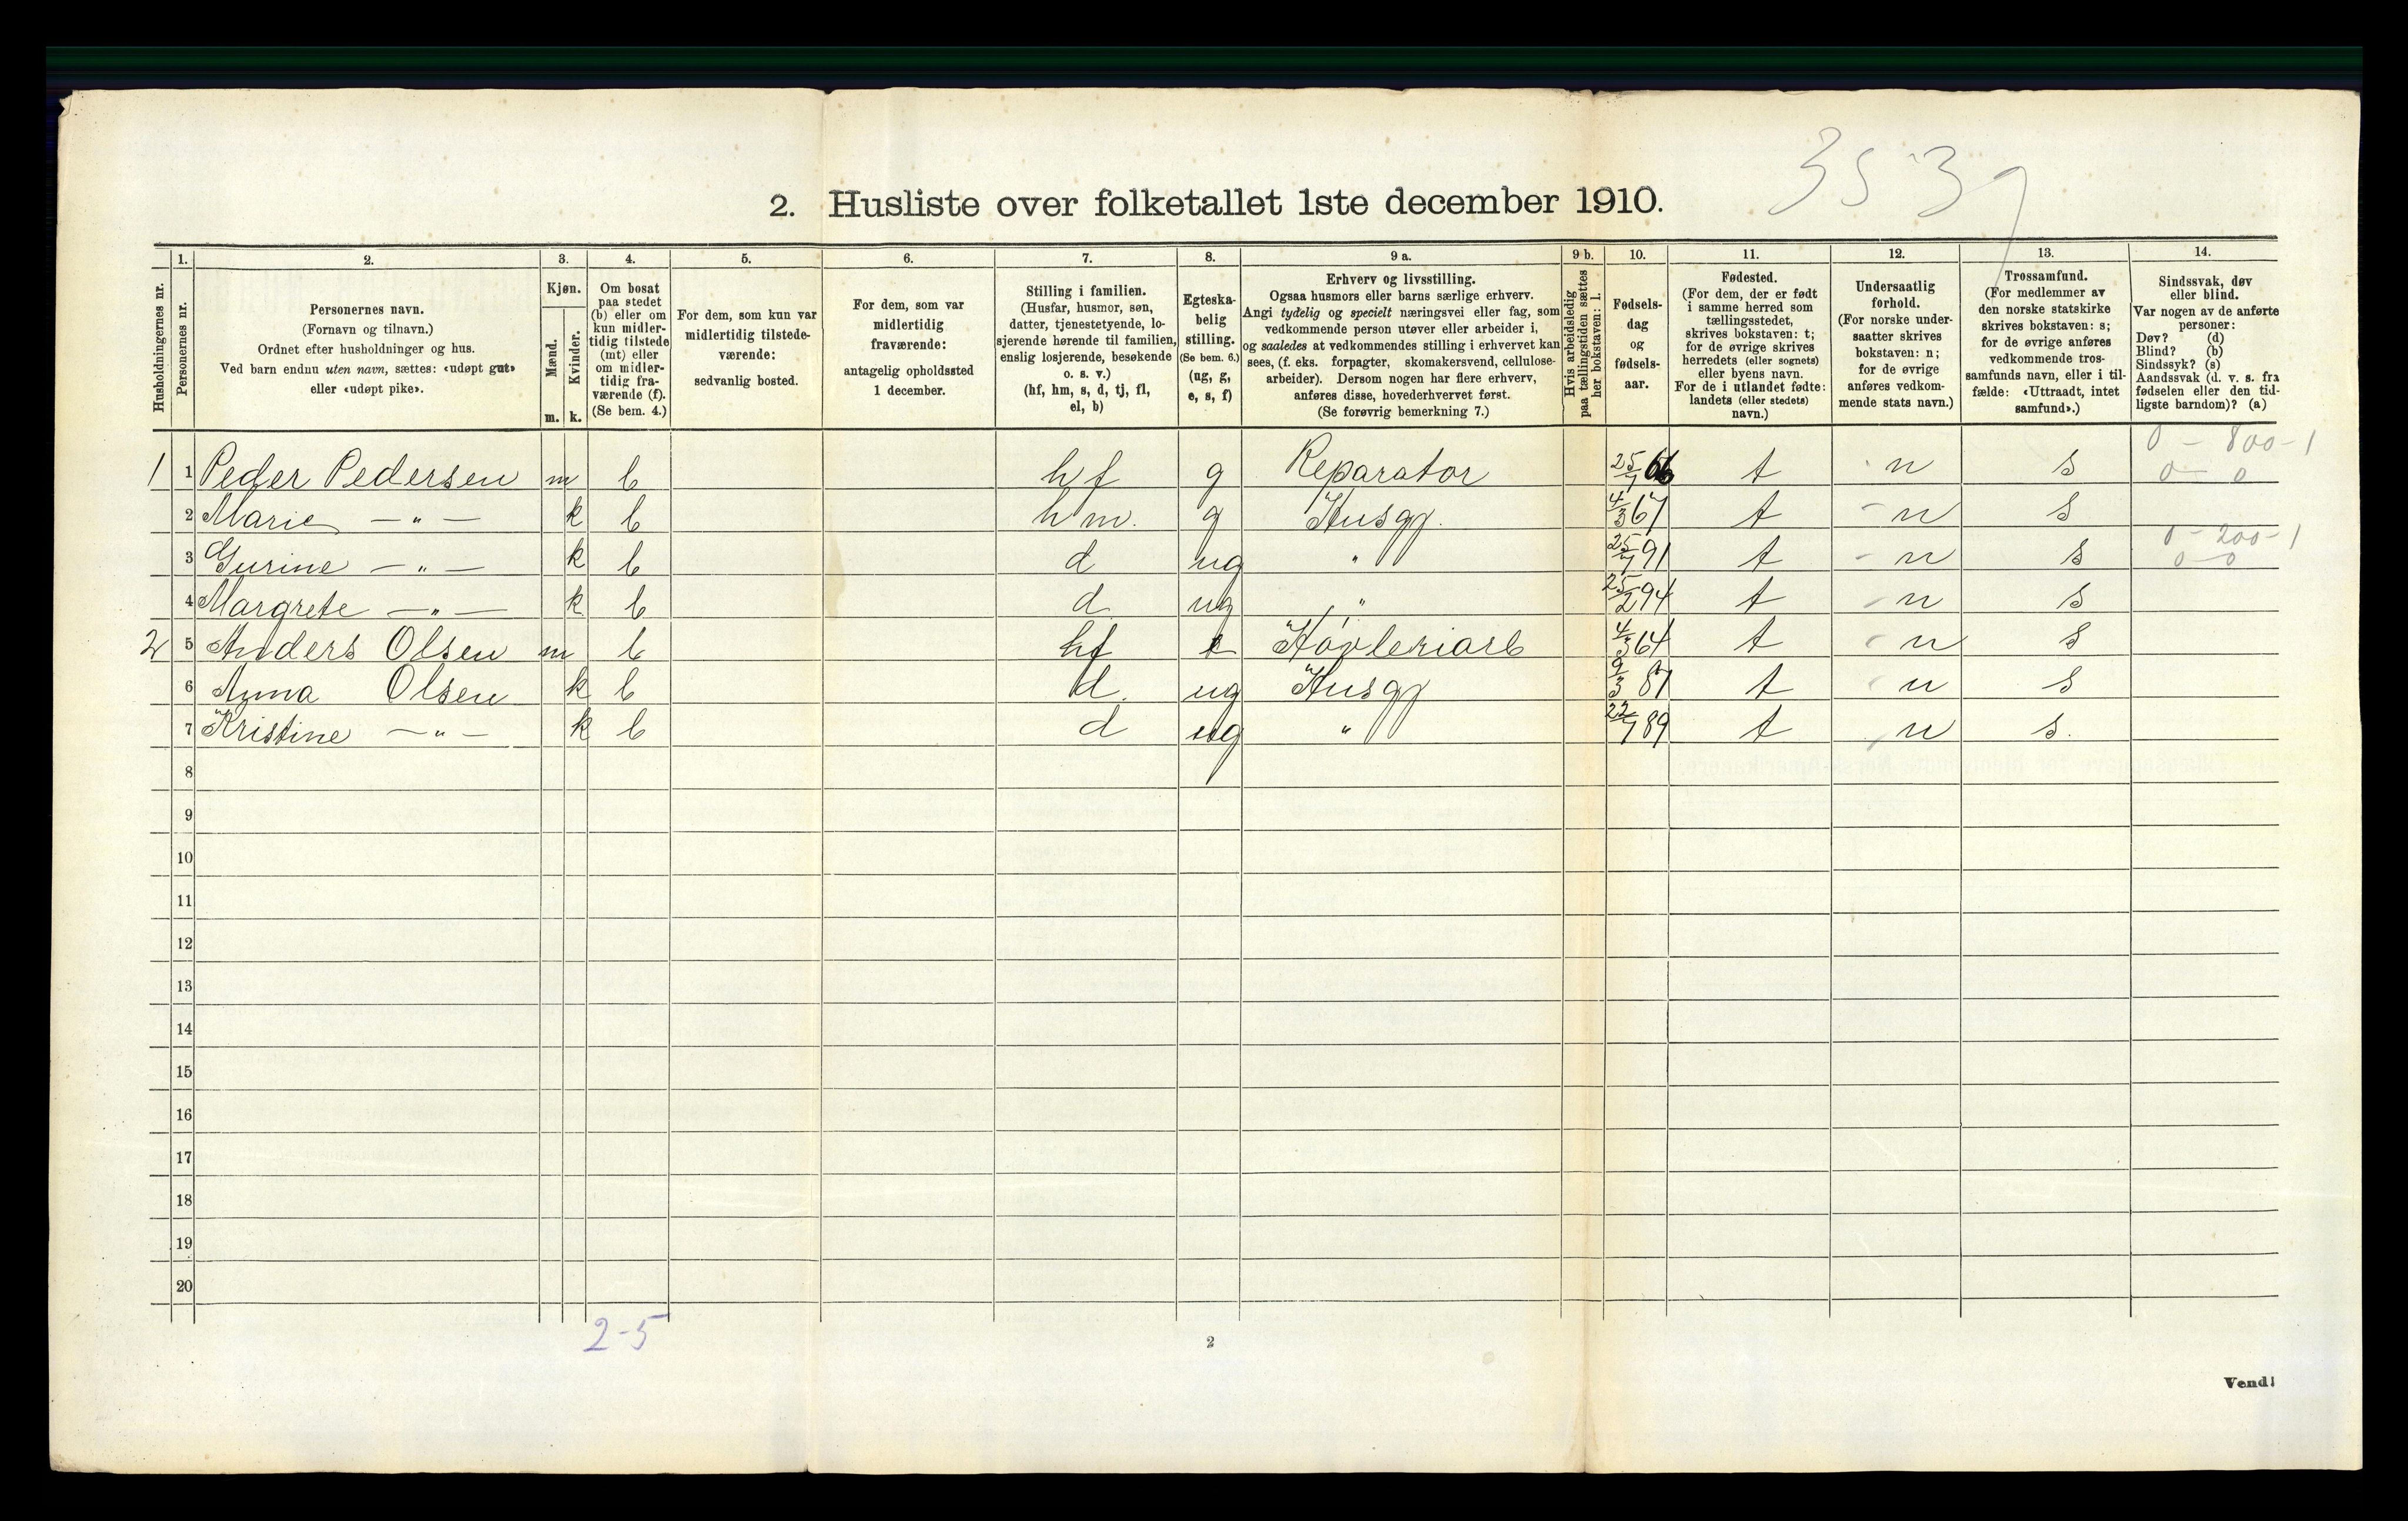 3539
2. Husliste over folketallet 1ste december 1910.
Husholdningernes nr.
1. Personernes nr.
2. Personernes navn. (Fornavn og tilnavn.) Ordnet efter husholdninger og hus. Ved barn endnu uten navn, sættes: «udøpt gut» eller «udøpt pike».
3. Kjøn. Mænd. m. Kvinder. k.
4. Om bosat paa stedet (b) eller om kun midlertidig tilstede (mt) eller om midlertidig fraværende (f). (Se bem. 4.)
5. For dem, som kun var midlertidig tilstedeværende: sedvanlig bosted.
6. For dem, som var midlertidig fraværende: antagelig opholdssted 1 december.
7. Stilling i familien. (Husfar, husmor, søn, datter, tjenestetyende, losjerende hørende til familien, enslig losjerende, besøkende o. s. v.) (hf, hm, s, d, tj, fl, el, b)
8. Egteskabelig stilling. (Se bem. 6.) (ug, g, e, s, f)
9 a. Erhverv og livsstilling. Ogsaa husmors eller barns særlige erhverv. Angi tydelig og specielt næringsvei eller fag, som vedkommende person utøver eller arbeider i, og saaledes at vedkommendes stilling i erhvervet kan sees, (f. eks. forpagter, skomakersvend, cellulosearbeider). Dersom nogen har flere erhverv, anføres disse, hovederhvervet først. (Se forøvrig bemerkning 7.)
9 b. Hvis arbeidsledig paa tællingstiden sættes her bokstaven: l.
10. Fødselsdag og fødselsaar.
11. Fødested. (For dem, der er født i samme herred som tællingsstedet, skrives bokstaven: t; for de øvrige skrives herredets (eller sognets) eller byens navn. For de i utlandet fødte: landets (eller stedets) navn.)
12. Undersaatlig forhold. (For norske undersaatter skrives bokstaven: n; for de øvrige anføres vedkommende stats navn.)
13. Trossamfund. (For medlemmer av den norske statskirke skrives bokstaven: s; for de øvrige anføres vedkommende trossamfunds navn, eller i tilfælde: «Uttraadt, intet samfund».)
14. Sindssvak, døv eller blind. Var nogen av de anførte personer: Døv? (d) Blind? (b) Sindssyk? (s) Aandssvak (d. v. s. fra fødselen eller den tidligste barndom)? (a)
0 - 800 - 1
1 1 Peder Pedersen m b hf g Reparator 25/7 66 t n s 0 - 0
2 Marie - " - k b hm. g Husgj. 4/3 67 t - n s
0 - 200 - 1
3 Gurine - " - k b d ug " 25/7 91 t - n s 0 - 0
4 Margrete - " - k b d ug " 25/2 94 t n s
2 5 Anders Olsen m b hf e Høvleriarb 4/3 64 t n s
6 Anna Olsen k b d. ug Husgj 9/3 87 t n s
7 Kristine - " - k b d ug " 22/7 89 t n s.
8
9
10
11
12
13
14
15
16
17
18
19
20
2-5
2
Vend!